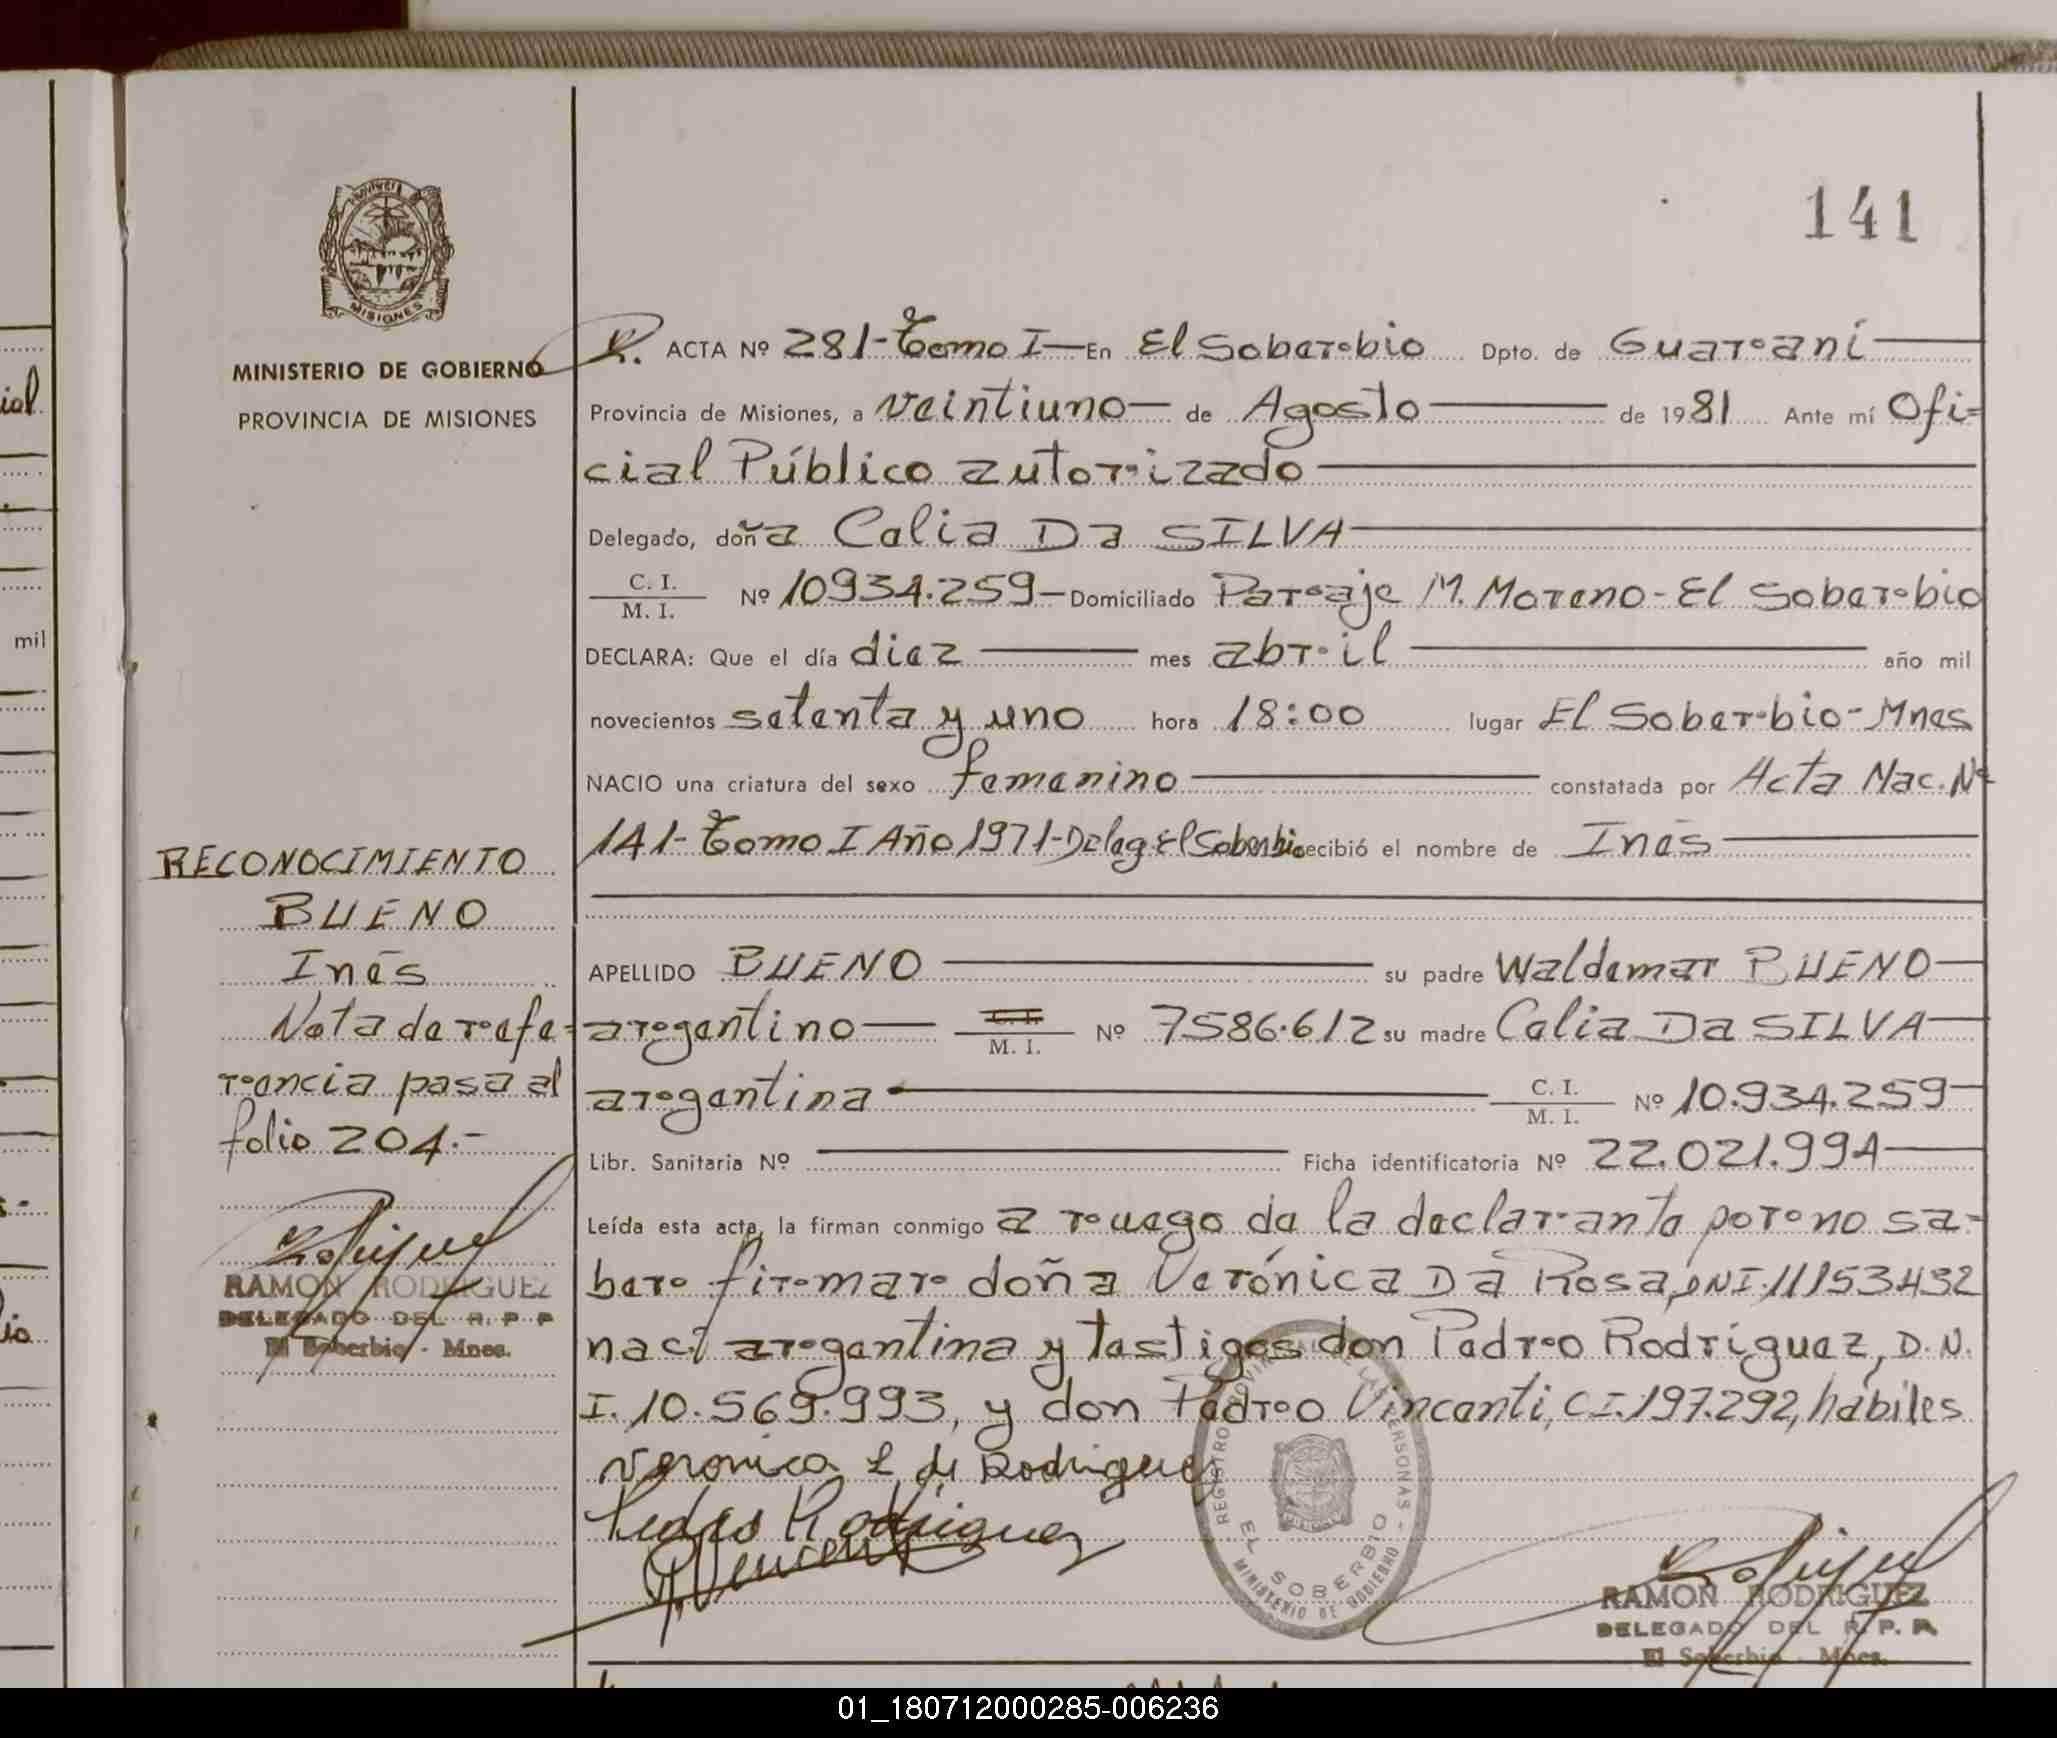 141
MISIONES
MINISTERIO DE GOBIERNO
PROVINCIA DE MISIONES
R. ACTA Nº 281-Tomo I-En El Soberbio Dpto. de Guaraní
Provincia de Misiones, a veintiuno de Agosto de 1981 Ante mí Ofi=
cial Público autorizado
Delegado, doña Celia Da SILVA
C. I.
M. I. Nº 10934.259-Domiciliado Paraje M. Moreno-El Soberbio
DECLARA: Que el día diez mes abril año mil
novecientos setenta y uno hora 18:00 lugar El Soberbio-Mnes
NACIO una criatura del sexo femenino constatada por Acta Nac. Nº
141-Tomo I Año 1971-Deleg. El Soberbio recibió el nombre de Inés
APELLIDO BUENO su padre Waldemar BUENO
argentino M. I. Nº 7586.612 su madre Celia Da SILVA
argentina C. I.
M. I. Nº 10.934.259
Libr. Sanitaria Nº Ficha identificatoria Nº 22.021.994
Leída esta acta, la firman conmigo a ruego de la declarante por no sa=
ber firmar doña Verónica Da Rosa, DNI. 11153432
nac. argentina y testigos don Pedro Rodríguez, D.N.
I. 10.569.993, y don Pedro Vincenti, C I. 197.292, hábiles
Veronica de Rodriguez
Pedro Rodriguez
RECONOCIMIENTO
BUENO
Inés
Nota de refe=
rencia pasa al
folio 204.-
RAMON RODRIGUEZ
DELEGADO DEL R. P. P
El Soberbio - Mnes.
REGISTRO PROVINCIAL DE LAS PERSONAS
EL SOBERBIO
MINISTERIO DE GOBIERNO
RAMON RODRIGUEZ
DELEGADO DEL R. P. P.
El Soberbio - Mnes.
ial
mil
01_180712000285-006236